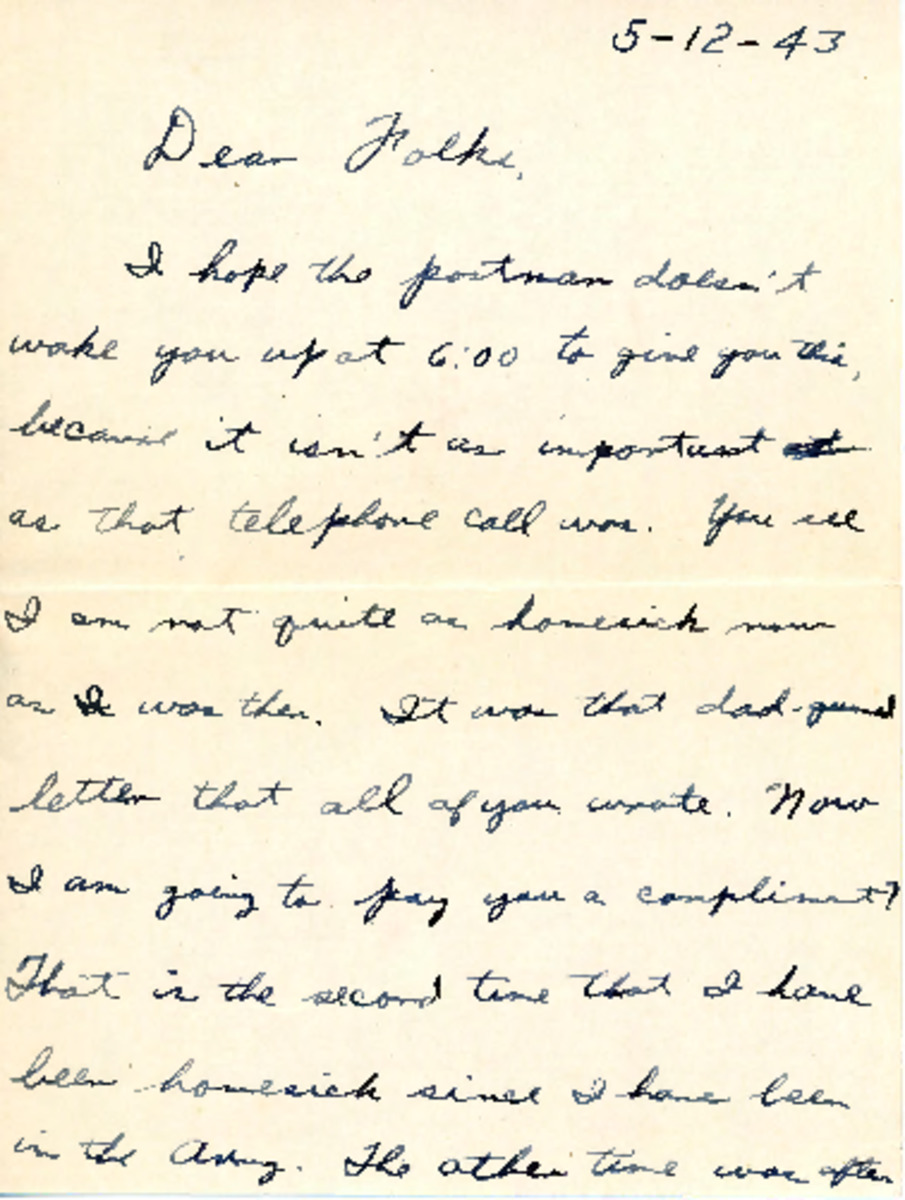 5-12-43
Dear Folks,
I hope the postman doesn't
wake you up at 6:00 to give you this,
because it isn't as important
as that telephone call was. You see
I am not quite as homesick now
as I was then. It was that dad-gummed
letter that all of you wrote. Now
I am going to pay you a compliment?
That is the second time that I have
been homesick since I have been
in the Army. The other time was after